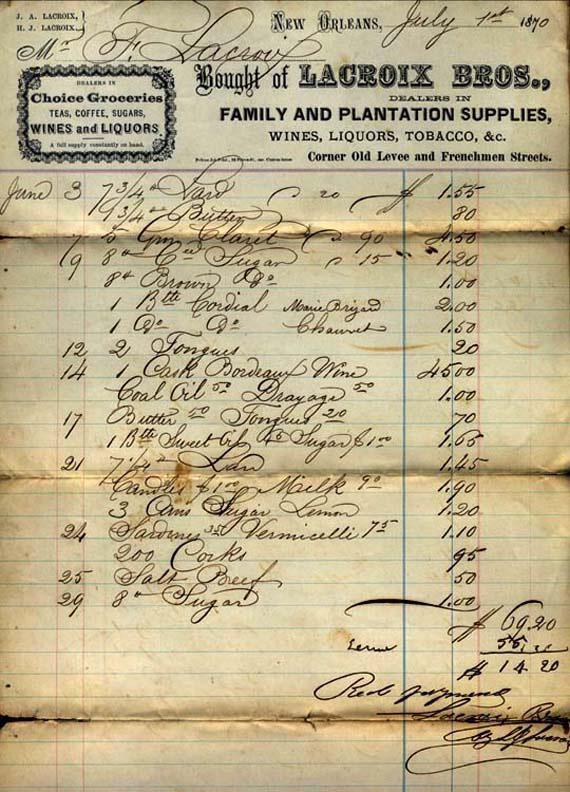 J. A. LACROIX,
H. J. LACROIX.
NEW ORLEANS, July 1st 1870
Mr F. Lacroix
Bought of LACROIX BROS.,
DEALERS IN
FAMILY AND PLANTATION SUPPLIES,
WINES, LIQUORS, TOBACCO, &c.
Corner Old Levee and Frenchmen Streets.
DEALERS IN
Choice Groceries
TEAS, COFFEE, SUGARS,
WINES and LIQUORS
A full supply constantly on hand.
June 3 7 3/4 # Lard 20 $ 1.55
1 3/4 # Butter 80
7 5 Gns Claret 90 4.50
9 8 # Sugar 15 1.20
8 # Brown Do 1.00
1 Btle Cordial Marie Brizard 2.00
1 Do Do Chauvet 1.50
12 2 Tongues 20
14 1 Cask Bordeaux Wine 45 00
Coal Oil 50 Drayage 50 1.00
17 Butter 50 Tongues 20 70
1 Btle Sweet Oil Sugar $1.00 1.65
21 7 1/4 # Lard 1.45
Candles $1.00 Milk 90 1.90
3 Cans Sugar Lemon 1.20
24 Sardines 35 Vermicelli 75 1.10
200 Corks 95
25 Salt Beef 50
29 8 # Sugar 1.00
$ 69.20
$ 14.20
Recd payment
Lacroix Bros